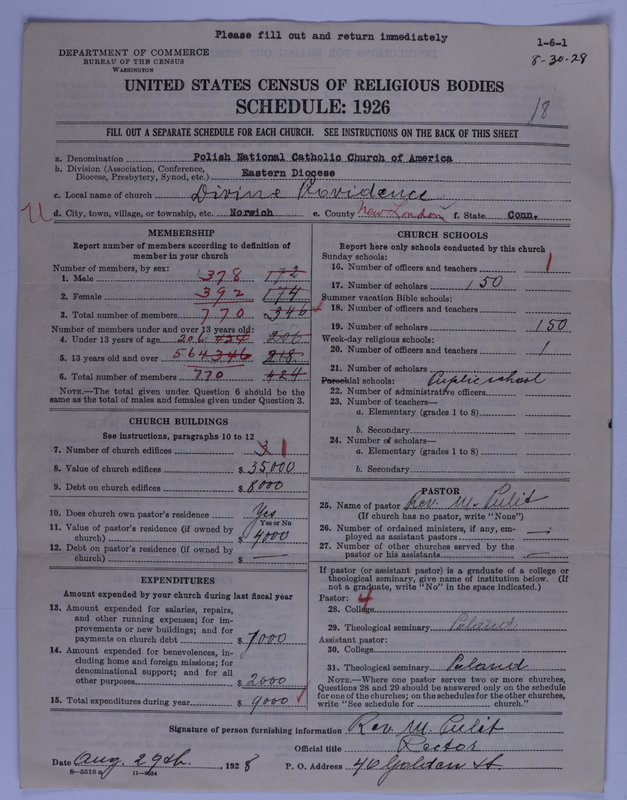 Please fill out and return immediately
1-6-1
8-30-28
DEPARTMENT OF COMMERCE
BUREAU OF THE CENSUS
WASHINGTON
UNITED STATES CENSUS OF RELIGIOUS BODIES
SCHEDULE: 1926
18
FILL OUT A SEPARATE SCHEDULE FOR EACH CHURCH. SEE INSTRUCTIONS ON THE BACK OF THIS SHEET
a. Denomination Polish National Catholic Church of America
b. Division (Association, Conference, Diocese, Presbytery, Synod, etc.) Eastern Diocese
c. Local name of church Divine Providence
d. City, town, village, or township, etc. Norwich e. County New London f. State Conn.
MEMBERSHIP
Report number of members according to definition of
member in your church
Number of members, by sex:
1. Male 378 172
2. Female 392 174
3. Total number of members 770 346
Number of members under and over 13 years old:
4. Under 13 years of age 206 424 206
5. 13 years old and over 564 346 218
6. Total number of members 770 424
NOTE.—The total given under Question 6 should be
same as the total of males and females given under Question 3.
CHURCH BUILDINGS
See instructions, paragraphs 10 to 12
7. Number of church edifices 3 1
8. Value of church edifices $ 35,000
9. Debt on church edifices $ 8000
10. Does church own pastor's residence Yes
Yes or No
11. Value of pastor's residence (if owned by
church) $ 4000
12. Debt on pastor's residence (if owned by
church) $ —
EXPENDITURES
Amount expended by your church during last fiscal year
13. Amount expended for salaries, repairs,
and other running expenses; for im-
provements or new buildings; and for
payments on church debt $ 7000
14. Amount expended for benevolences, in-
cluding home and foreign missions; for
denominational support; and for all
other purposes $ 2000
15. Total expenditures during year $ 9000
CHURCH SCHOOLS
Report here only schools conducted by this church
Sunday schools:
16. Number of officers and teachers 1
17. Number of scholars 150
Summer vacation Bible schools:
18. Number of officers and teachers
19. Number of scholars 150
Week-day religious schools:
20. Number of officers and teachers 1
21. Number of scholars
Parochial schools: Public school
22. Number of administrative officers
23. Number of teachers—
a. Elementary (grades 1 to 8)
b. Secondary
24. Number of scholars—
a. Elementary (grades 1 to 8)
b. Secondary
PASTOR
25. Name of pastor Rev. M. Pulit
(If church has no pastor, write "None")
26. Number of ordained ministers, if any, em-
ployed as assistant pastors —
27. Number of other churches served by the
pastor or his assistants —
If pastor (or assistant pastor) is a graduate of a college or
theological seminary, give name of institution below. (If
not a graduate, write "No" in the space indicated.)
Pastor: 4
28. College
29. Theological seminary Poland
Assistant pastor:
30. College
31. Theological seminary Poland
NOTE.—Where one pastor serves two or more churches,
Questions 28 and 29 should be answered only on the schedule
for one of the churches; on the schedules for the other churches,
write "See schedule for church."
Signature of person furnishing information Rev. M. Pulit
Official title Rector
Date Aug. 29th, 1928 P. O. Address 40 Golden St.
8—5513 a 11—9034